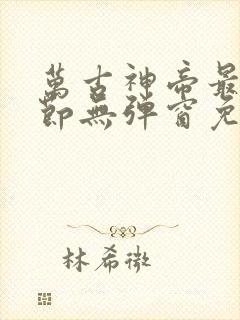 萬古神帝最
節無彈窗免
林希微